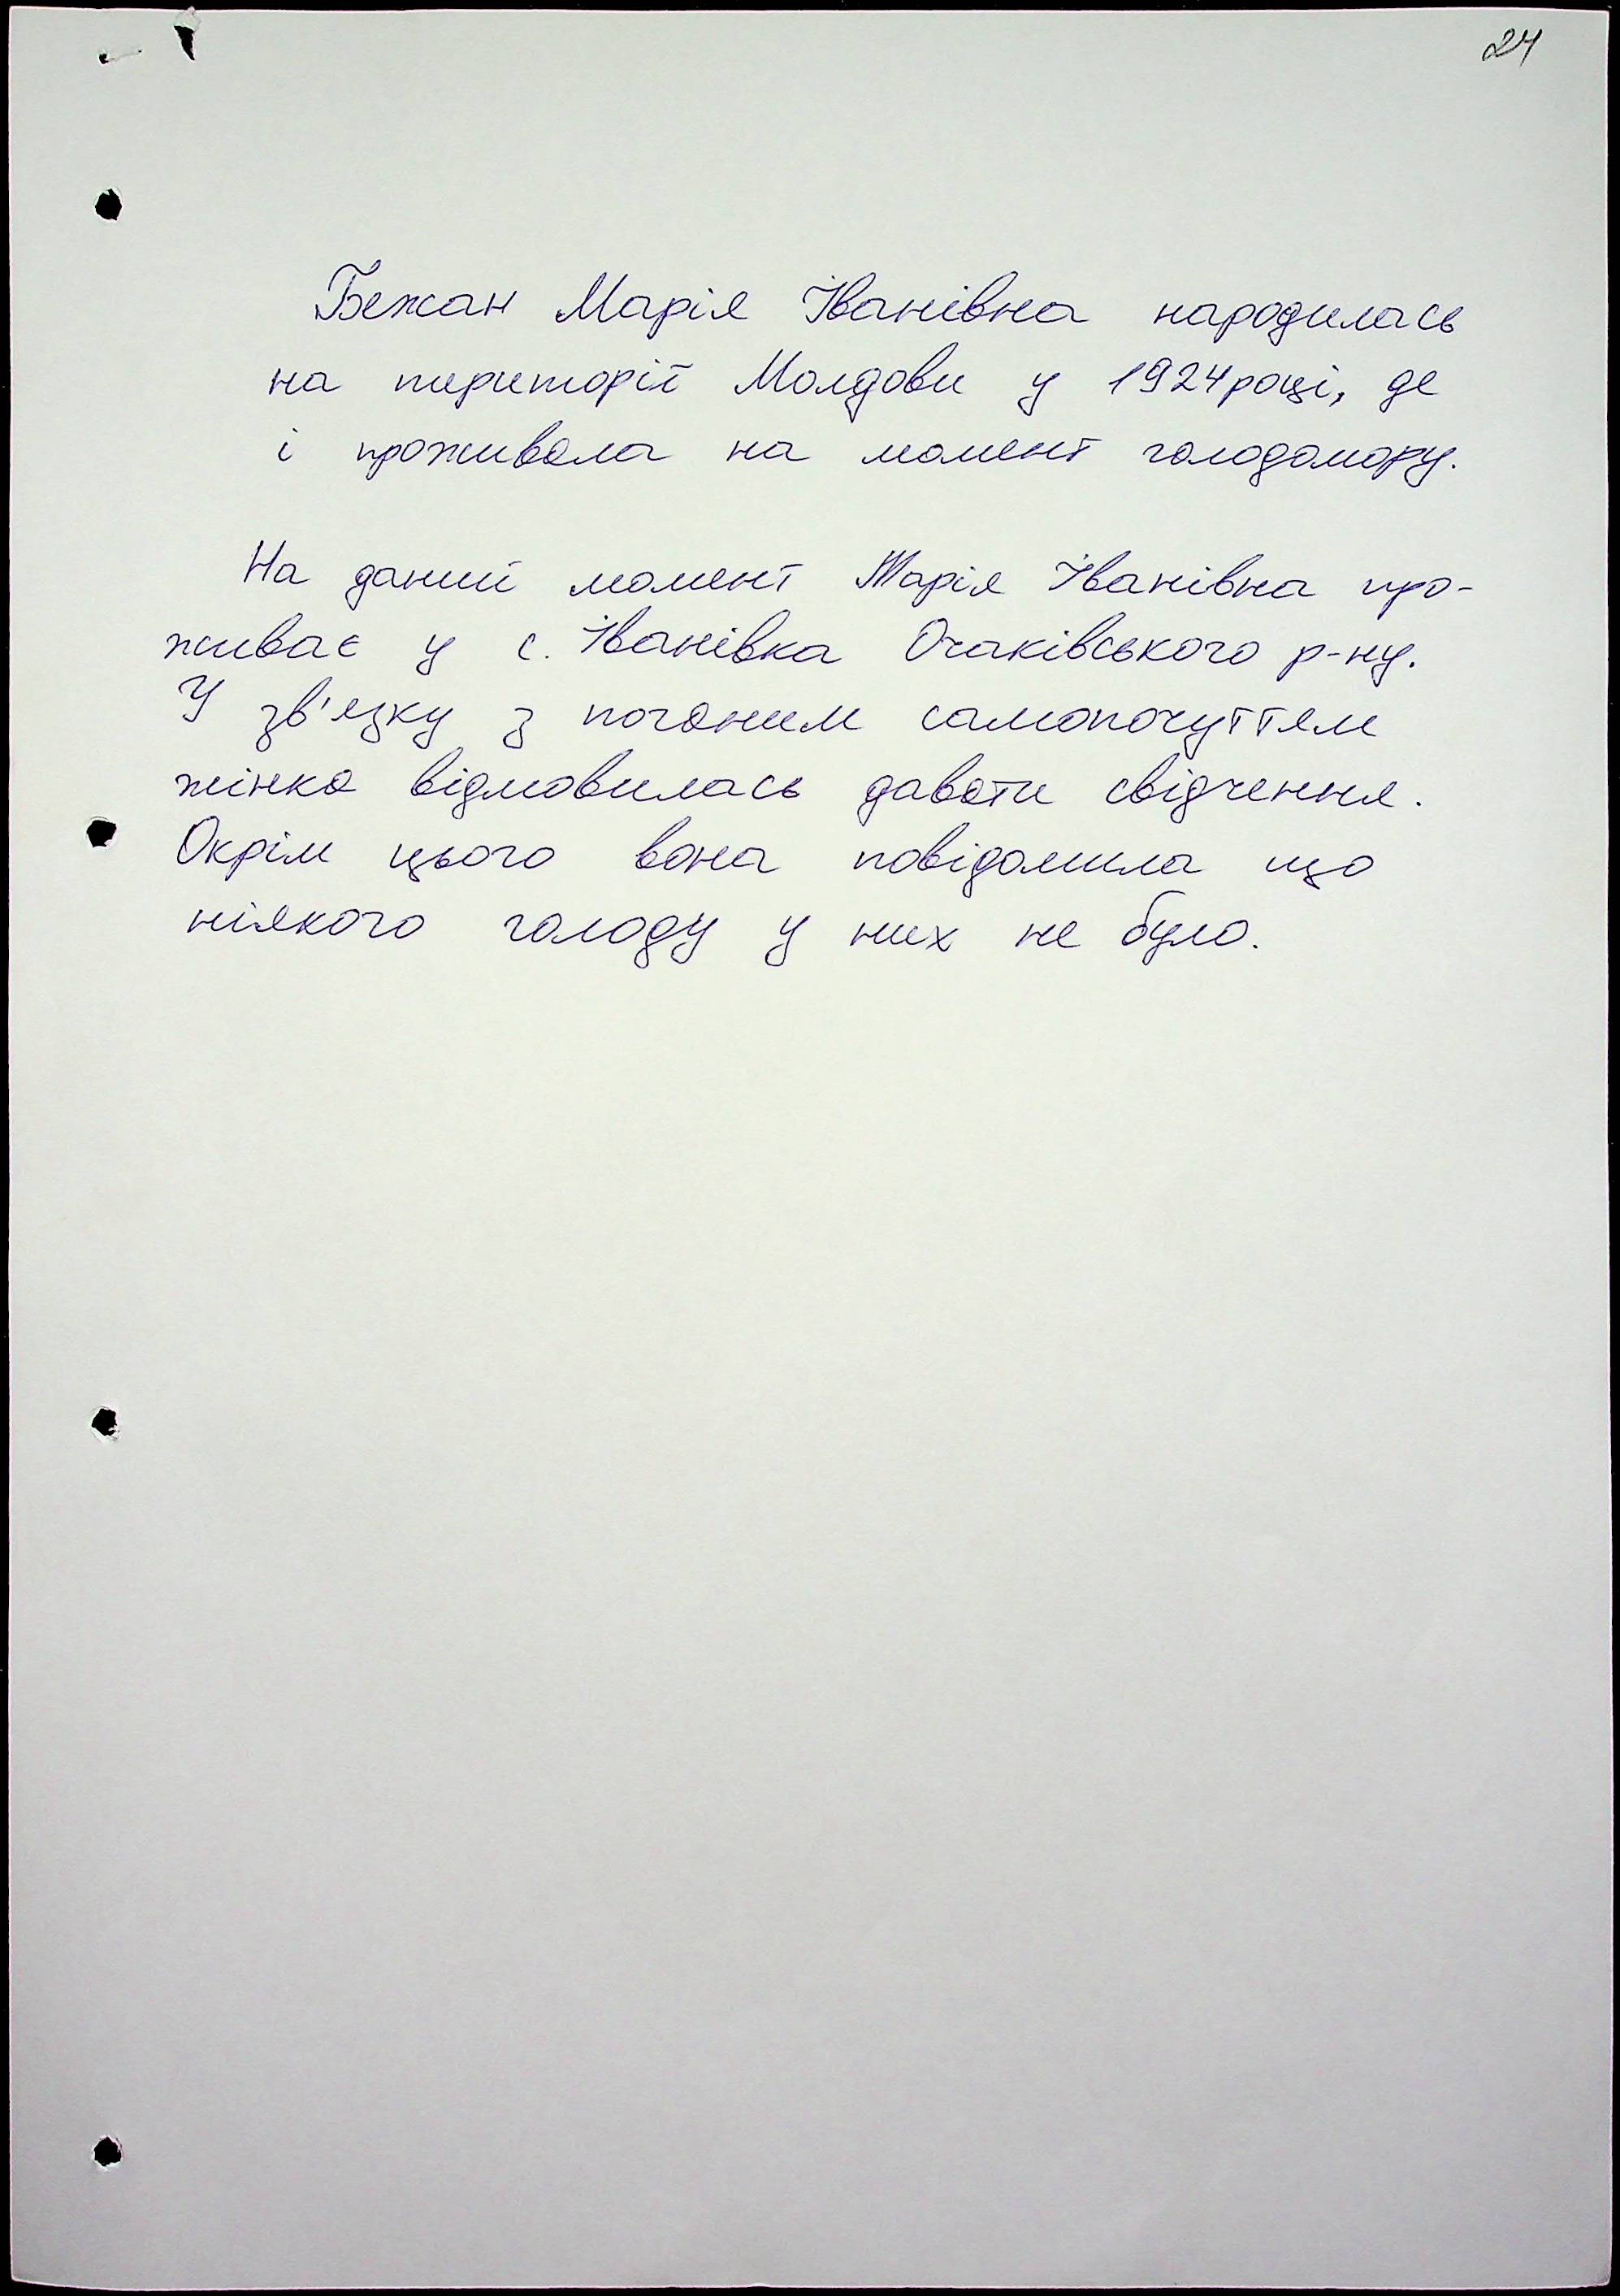 24
Бежан Марія Іванівна народилась
на території Молдови у 1924році, де
і проживала на момент голодомору.
На даний момент Марія Іванівна про-
живає у с. Іванівка Очаківського р-ну.
У зв'язку з поганим самопочуттям
жінка відмовилась давати свідчення.
Окрім цього вона повідомила що
ніякого голоду у них не було.